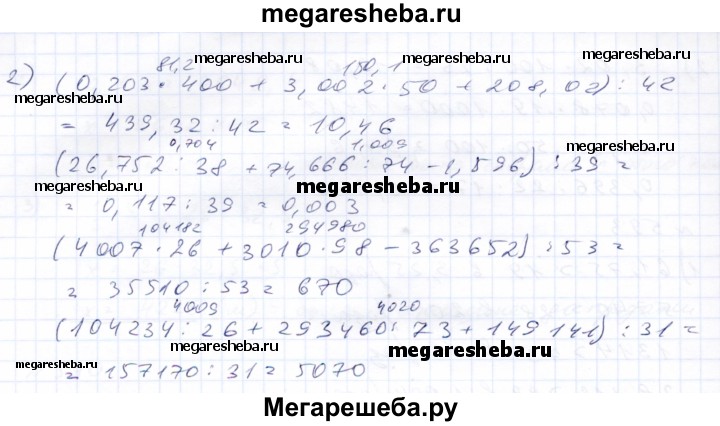 megaresheba.ru
81,2 150,1
megaresheba.ru megaresheba.ru
2) (0,203 · 400 + 3,002 · 50 + 208,02) : 42
megaresheba.ru megaresheba.ru
= 439,32 : 42 = 10,46
0,704 1,009
megaresheba.ru megaresheba.ru
(26,752 : 38 + 74,666 : 74 - 1,596) : 39 =
megaresheba.ru megaresheba.ru
= 0,117 : 39 = 0,003
104182 294980
megaresheba.ru
(4007 · 26 + 3010 · 98 - 363652) : 53 =
= 35510 : 53 = 670
4009 4020
(104234 : 26 + 293460 : 73 + 149141) : 31 =
megaresheba.ru megaresheba.ru megaresheba.ru
= 157170 : 31 = 5070
Мегарешеба.ру